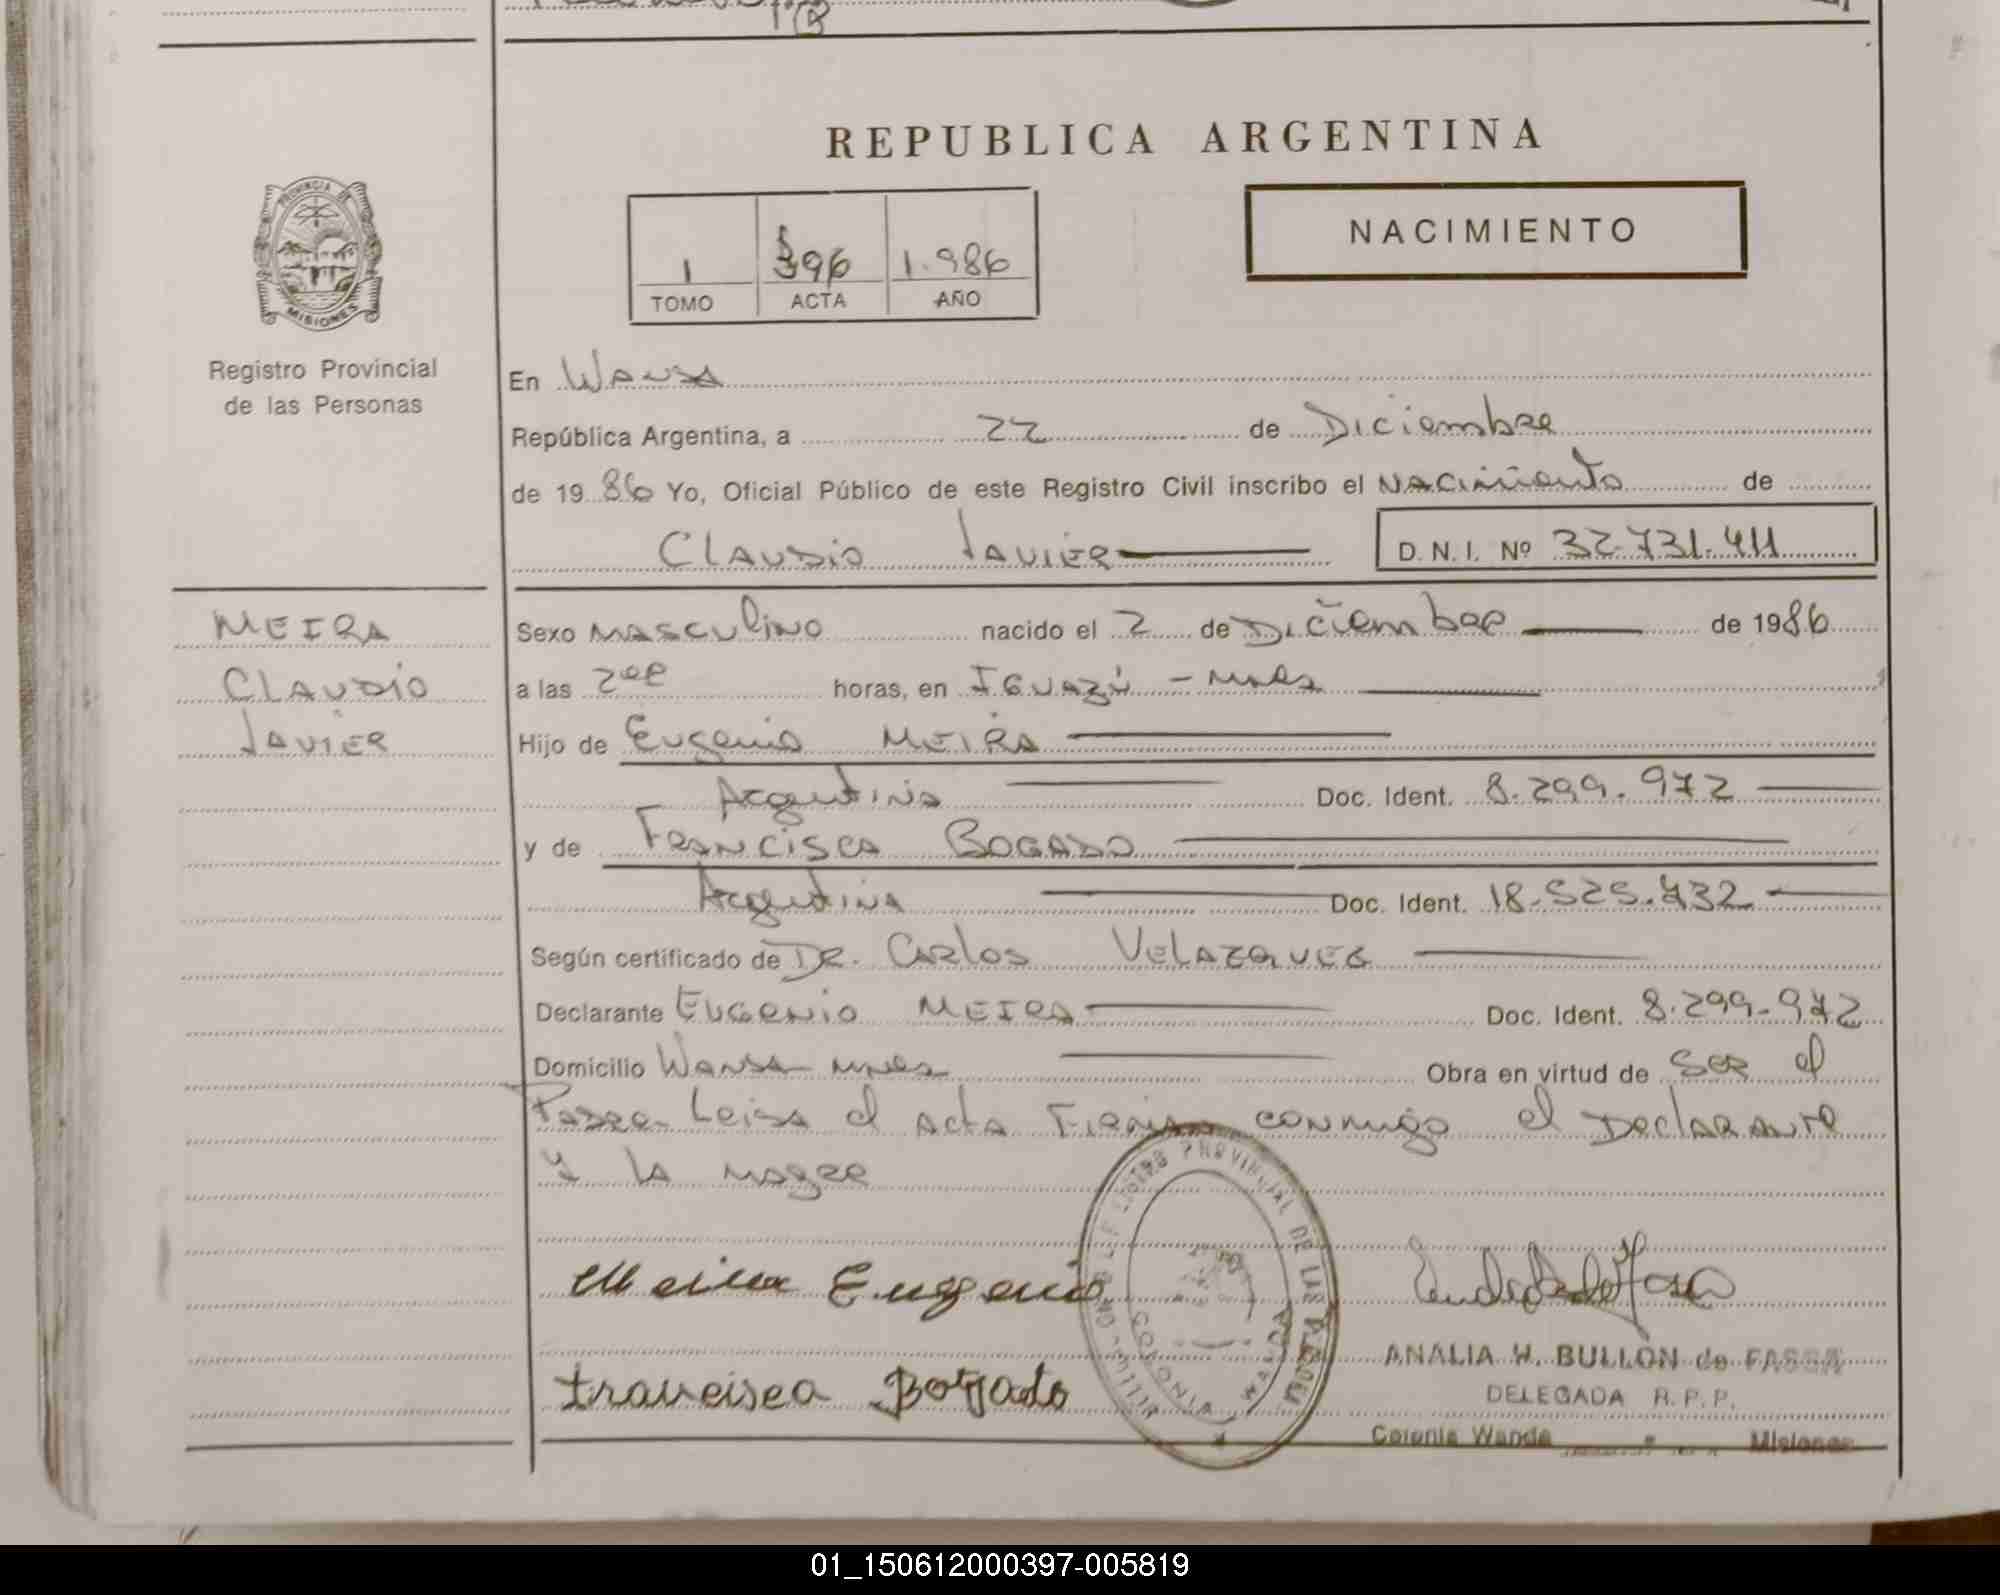 REPUBLICA ARGENTINA
PROVINCIA DE
MISIONES
Registro Provincial
de las Personas
1 396 1.986
TOMO ACTA AÑO
NACIMIENTO
En Wanda
República Argentina, a 22 de Diciembre
de 1986 Yo, Oficial Público de este Registro Civil inscribo el Nacimiento de
Claudio Javier D.N.I. Nº 32.731.411
MEIRA
Claudio
Javier
Sexo masculino nacido el 2 de Diciembre de 1986
a las horas, en Iguazú - Mnes
Hijo de Eugenio MEIRA
Argentina Doc. Ident. 8.299.972
y de Francisca Bogado
Argentina Doc. Ident. 18.525.732
Según certificado de Dr. Carlos Velazquez
Declarante Eugenio MEIRA Doc. Ident. 8.299.972
Domicilio Wanda Mnes Obra en virtud de ser el
Padre Leida el acta Firma conmigo el Declarante
y la madre
Meira Eugenio
Francisca Bogado
PROVINCIAL DE LAS
COLONIA WANDA
ANALIA W. BULLON de FASSA
DELEGADA R.P.P.
Colonia Wanda Misiones
01_150612000397-005819